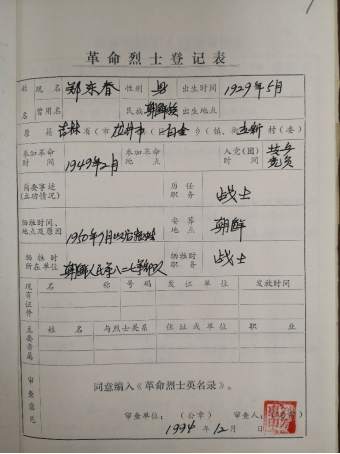 革命烈士登记表
姓 现名 郑东春 性别 男 出生时间 1929年5月
名 曾用名 民族 朝鲜族 出生地点
原籍 吉林省(市 (镇、 村(委)
参加革命时间 1949年2月 参加革命地点 入党(团)时间
简要事迹(立功情况) 历任职务 战士
牺牲时间、地点及原因 1950年9月 安葬地点 朝鲜
牺牲时所在单位 朝鲜人民军 牺牲时职务 战士
现有证件 名称 号码 发证单位 发放时间
主要亲属 姓名 与烈士关系 住址或单位 职业
审查意见 同意编入《革命烈士英名录》。
审查单位: (公章) 审查人:
1994年12月 日